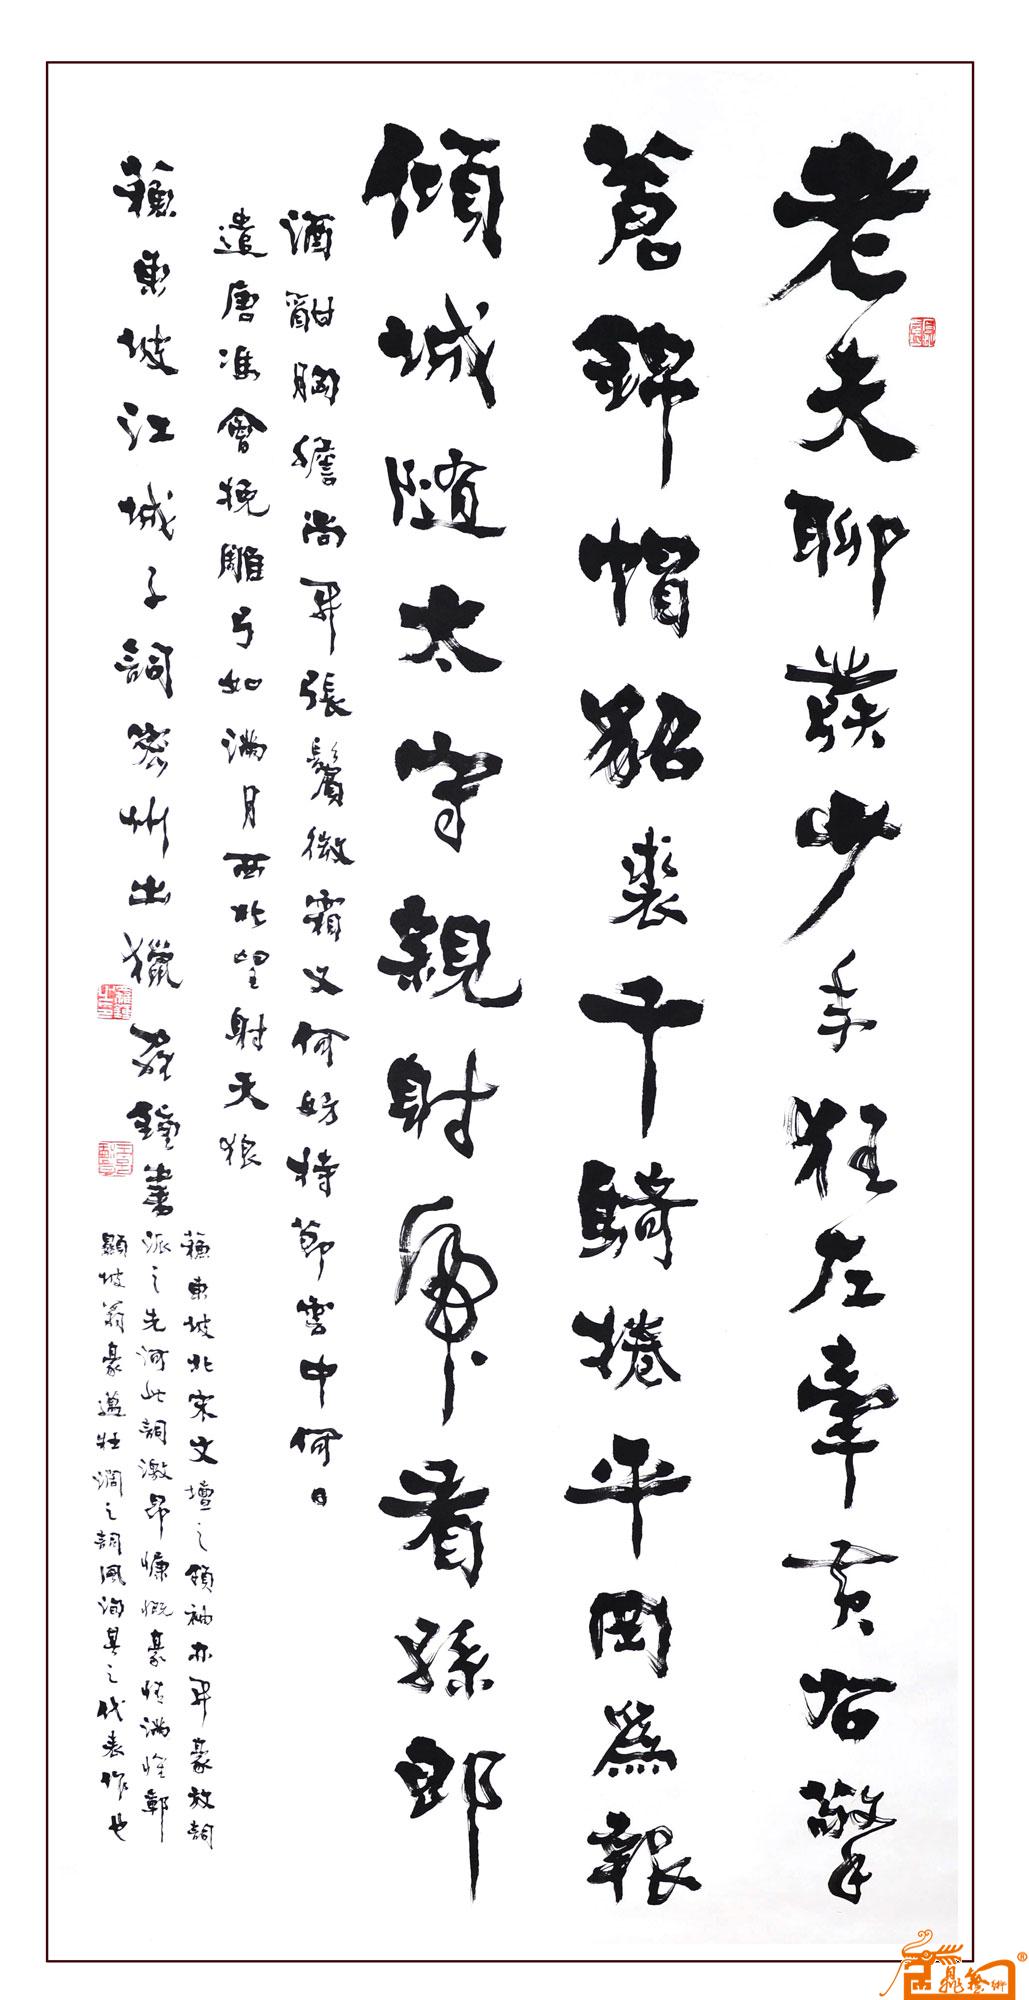 老夫聊發少年狂左牽黃右擎
蒼錦帽貂裘千騎捲平岡為報
傾城隨太守親射虎看孫郎
酒酣胸膽尚開張鬢微霜又何妨持節雲中何日
遣馮唐會挽雕弓如滿月西北望射天狼
蘇東坡江城子詞密州出獵 鐘書
蘇東坡北宋文壇之領袖亦開豪放詞
派之先河此詞激昂慷慨豪情滿懷
顯坡翁豪邁壯闊之詞風洵其之代表作也